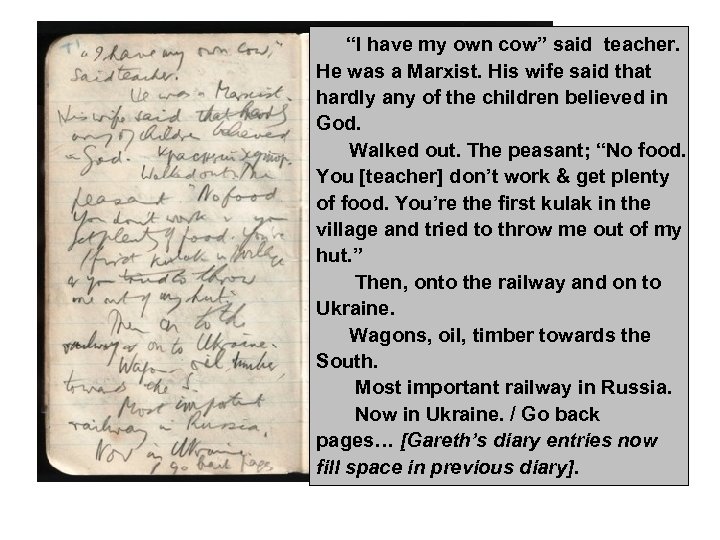 "I have my own cow,"
said teacher.
He was a Marxist.
His wife said that hardly
any of children believed
in God.
Walked out. The
peasant "No food.
You don't work & you
get plenty of food. You're
first kulak in village
& you tried to throw
me out of my hut."
Then on to the
railway & on to Ukraine.
Wagons, oil, timber,
towards the S.
Most important
railway in Russia.
Now in Ukraine.
/ go back pages
“I have my own cow” said teacher.
He was a Marxist. His wife said that
hardly any of the children believed in
God.
Walked out. The peasant; “No food.
You [teacher] don’t work & get plenty
of food. You’re the first kulak in the
village and tried to throw me out of my
hut.”
Then, onto the railway and on to
Ukraine.
Wagons, oil, timber towards the
South.
Most important railway in Russia.
Now in Ukraine. / Go back
pages… [Gareth’s diary entries now
fill space in previous diary].